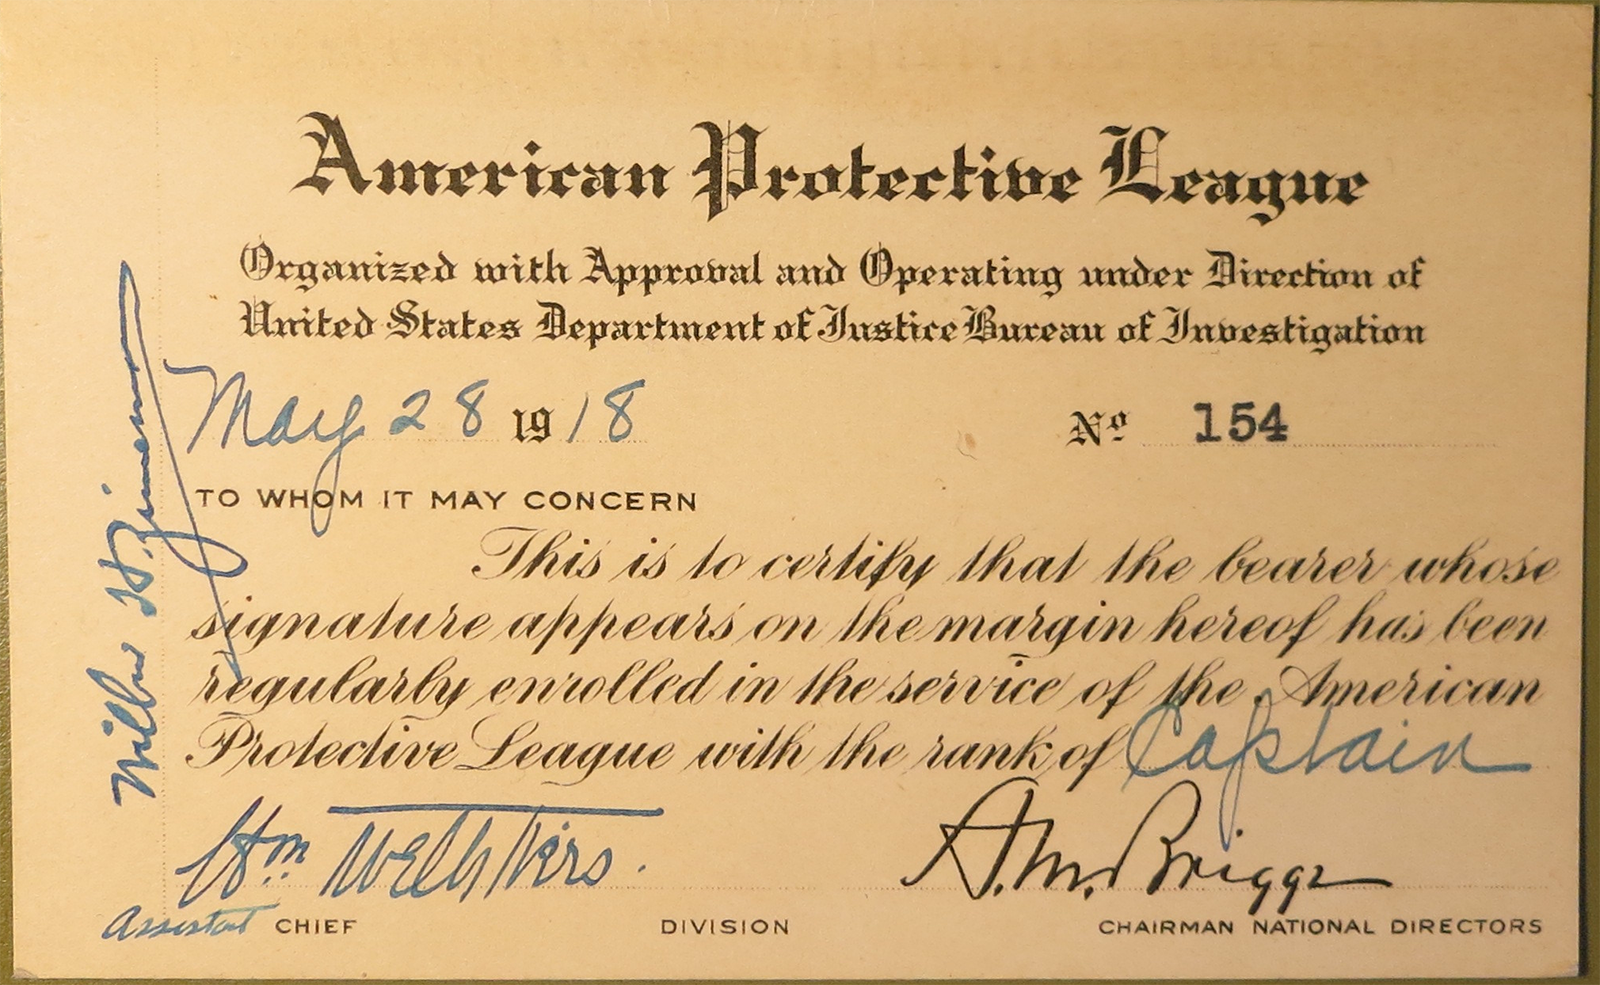 American Protective League
Organized with Approval and Operating under Direction of
United States Department of Justice Bureau of Investigation
May 28 1918 No 154
TO WHOM IT MAY CONCERN
This is to certify that the bearer whose
signature appears on the margin hereof has been
regularly enrolled in the service of the American
Protective League with the rank of Captain
Wm
A. M. Briggs
Assistant CHIEF DIVISION CHAIRMAN NATIONAL DIRECTORS
H. Zimmerman